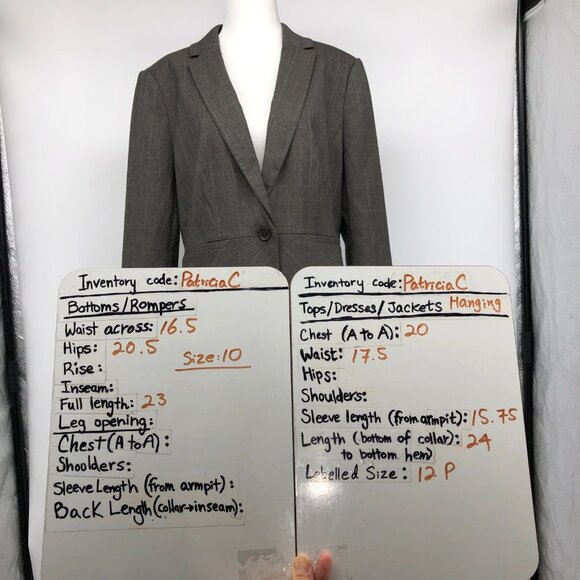 Inventory code: Patricia C
Bottoms/Rompers
Waist across: 16.5
Hips: 20.5
Size: 10
Rise:
Inseam:
Full length: 23
Leg opening:
Chest (A to A):
Shoulders:
Sleeve Length (from armpit):
Back Length (collar→inseam):
Inventory code: Patricia C
Tops/Dresses/Jackets Hanging
Chest (A to A): 20
Waist: 17.5
Hips:
Shoulders:
Sleeve length (from armpit): 15.75
Length (bottom of collar): 24
to bottom hem)
Labelled Size: 12 P